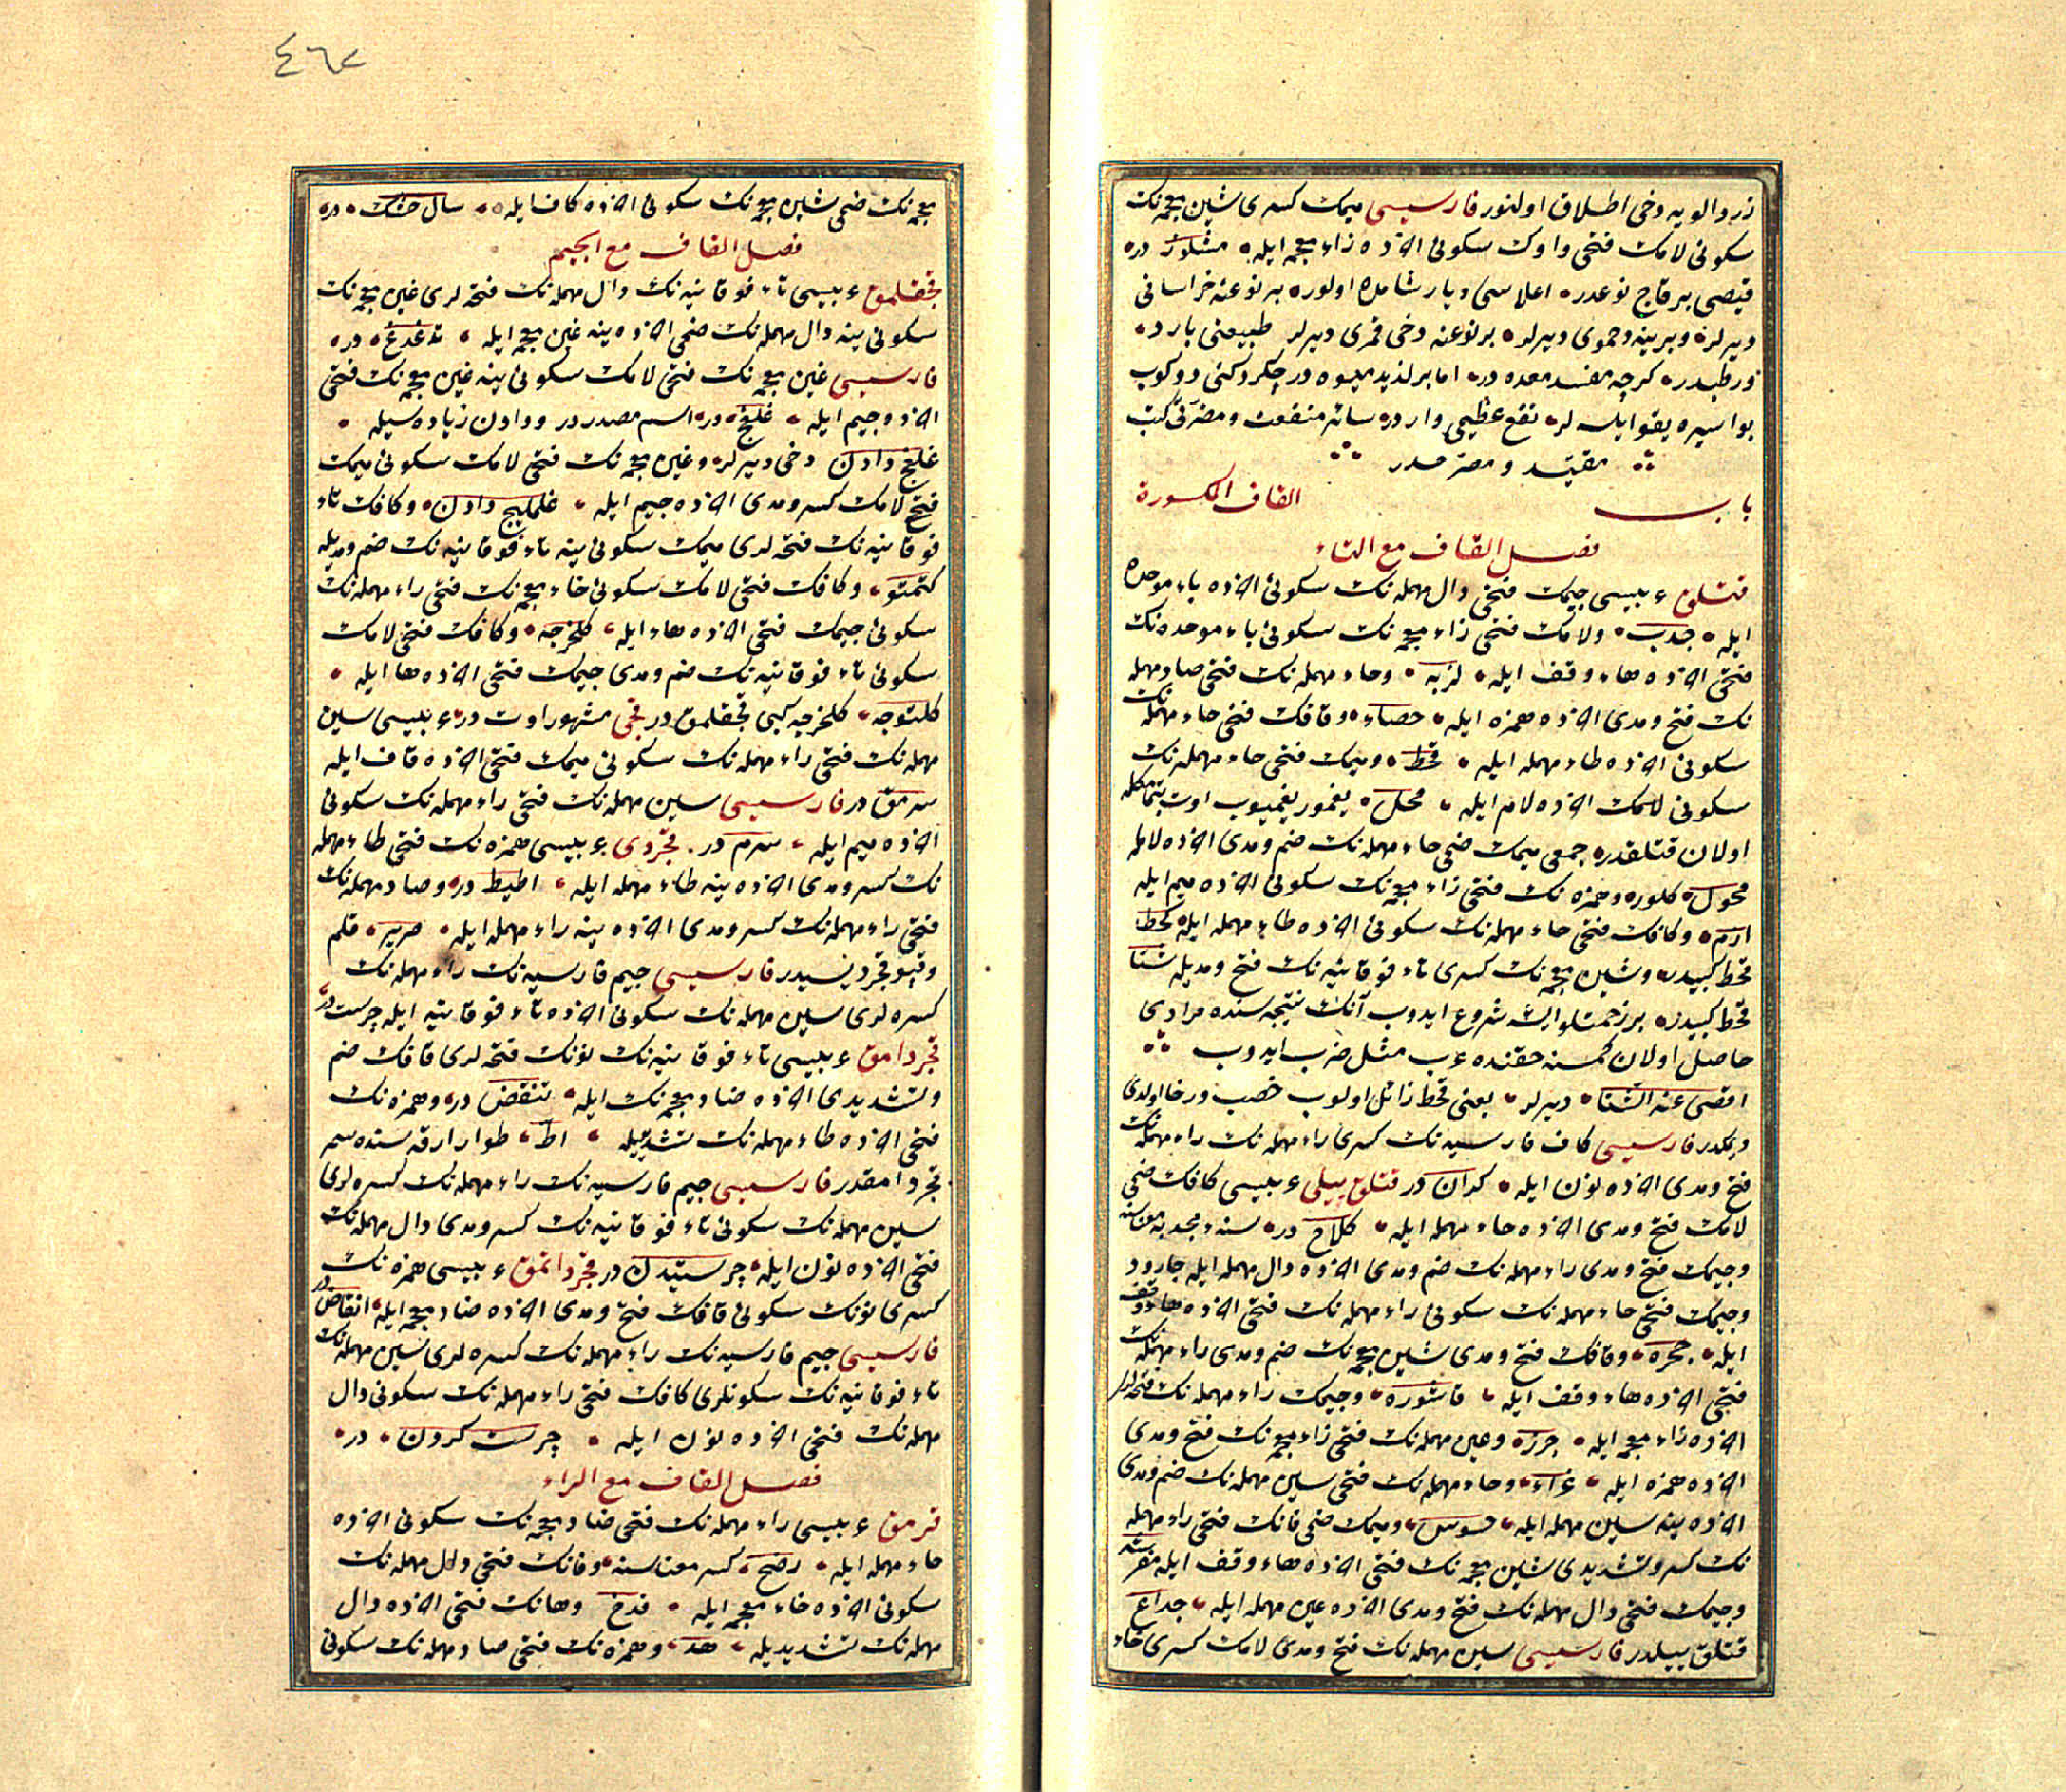 زردالویه دخی اطلاق اولنور فارسیسی میمك كسری شین معجمه‌نك
سكونی لامك فتحی واوك سكونی آخرده زاء معجمه ایله مشلوز در
قیصی بر قاج نوعدر اعلاسی دیار شامده اولور بر نوعنه خراسانی
دیرلر و برینه حموی دیرلر بر نوعنه دخی قمری دیرلر طبیعتی بارد
و رطبدر كرچه مفسد معده در اما بر لذیذ میوه در چكردكنی دوكوب
بواسیره یقو ایلسه‌لر نفع عظیمی وارد سائر منفعت و مضرتی كتب
باب القاف المكسورة
فصل القاف مع التاء
قتلق عربیسی جیمك فتحی دال مهمله‌نك سكونی آخرده باء موحده
ایله جدب ولامك فتحی زاء معجمه‌نك سكونی باء موحده‌نك
فتحی آخرده هاء وقف ایله لزبه وحاء مهمله‌نك فتحی صاد مهمله
نك فتح و مدی آخرده همزه ایله حصاء وقافك فتحی حاء مهمله‌نك
سكونی آخرده طاء مهمله ایله قحط و میمك فتحی حاء مهمله‌نك
سكونی آخرده لام ایله محل یغمور یغمیوب اوت بتمامكله
اولان قتلقدر جمعی میمك ضمی حاء مهمله‌نك ضم و مدی آخرده لامله
محول كلور و همزه‌نك فتحی زاء معجمه‌نك سكونی آخرده میم ایله
ازم وكافك فتحی حاء مهمله‌نك سكونی آخرده طاء مهمله ایله كحط
قحط كبیدر و شین معجمه‌نك كسری تاء فوقانیه‌نك فتح و مدیله شتا
قحط كبیدر بر زحمتلو ایشه شروع ایدوب آنك نتیجه‌سنده مرادی
حاصل اولان كمسنه حقنده عرب مثل ضرب ایدوب
اقصی عنه الشتا دیرلر یعنی قحط زائل اولوب خصب و رخا اولدی
دیمكدر فارسیسی كاف فارسیه‌نك كسری راء مهمله‌نك
فتح و مدی آخرده نون ایله كران در قتلق ییلی عربیسی كافك ضمی
لامك فتح و مدی آخرده حاء مهمله ایله كلاح در سنه مجدبه معناسنه
وجیمك فتح و مدی راء مهمله‌نك ضم و مدی آخرده دال مهمله ایله جارود
وجیمك فتحی حاء مهمله‌نك سكونی راء مهمله‌نك فتحی آخرده هاء وقف
ایله جحره وقافك فتح و مدی شین معجمه‌نك ضم و مدی راء مهمله‌نك
فتحی آخرده هاء وقف ایله قاشوره وجیمك راء مهمله‌نك فتحه‌لری
آخرده زاء معجمه ایله جرز وعین مهمله‌نك فتحی زاء معجمه‌نك فتح و مدی
آخرده همزه ایله عزاء وحاء مهمله‌نك فتحی سین مهمله‌نك ضم و مدی
آخرده ینه سین مهمله ایله حسوس و میمك ضمی قافك فتحی راء مهمله
نك كسر و تشدیدی شین معجمه‌نك فتحی آخرده هاء وقف ایله مقرشه
وجیمك فتحی دال مهمله‌نك فتح و مدی آخرده عین مهمله ایله جداع
قتلق ییلدر فارسیسی سین مهمله‌نك فتح و مدی لامك كسری خاء
٤٦٢
معجمه‌نك ضمی شین معجمه‌نك سكونی آخرده كاف ایله سال خشك در
فصل القاف مع الجیم
قجقلمق عربیسی تاء فوقانیه‌نك دال مهمله‌نك فتحه‌لری غین معجمه‌نك
سكونی ینه دال مهمله‌نك ضمی آخرده ینه غین معجمه ایله تدغدغ در
فارسیسی غین معجمه‌نك فتحی لامك سكونی ینه غین معجمه‌نك فتحی
آخرده جیم ایله غلغج در اسم مصدردر و دادن زیاده‌سیله
غلغج دادن دخی دیرلر و غین معجمه‌نك فتحی لامك سكونی میمك
فتحی لامك كسر و مدی آخرده جیم ایله غلملیج دادن وكافك تاء
فوقانیه‌نك فتحه‌لری میمك سكونی ینه تاء فوقانیه‌نك ضم و مدیله
كتمتو وكافك فتحی لامك سكونی خاء معجمه‌نك فتحی راء مهمله‌نك
سكونی جیمك فتحی آخرده هاء ایله كلخرجه وكافك فتحی لامك
سكونی تاء فوقانیه‌نك ضم و مدی جیمك فتحی آخرده ها ایله
كلتوجه كلخرجه كبی قجقلمق در قجی مشهور اوت در عربیسی سین
مهمله‌نك فتحی راء مهمله‌نك سكونی میمك فتحی آخرده قاف ایله
سرمق در فارسیسی سین مهمله‌نك فتحی راء مهمله‌نك سكونی
آخرده میم ایله سرم در قجردی عربیسی همزه‌نك فتحی طاء مهمله
نك كسر و مدی آخرده ینه طاء مهمله ایله اطیط در وصاد مهمله‌نك
فتحی راء مهمله‌نك كسر و مدی آخرده ینه راء مهمله ایله صریر قلم
وقپو قجردیسیدر فارسیسی جیم فارسیه‌نك راء مهمله‌نك
كسره‌لری سین مهمله‌نك سكونی آخرده تاء فوقانیه ایله چرست در
قجردامق عربیسی تاء فوقانیه‌نك نونك فتحه‌لری قافك ضم
و تشدیدی آخرده ضاد معجمه‌نك ایله تنقض در و همزه‌نك
فتحی آخرده طاء مهمله‌نك تشدیدیله اط طوار ارقه‌سنده سمر
قجردامقدر فارسیسی جیم فارسیه‌نك راء مهمله‌نك كسره‌لری
سین مهمله‌نك سكونی تاء فوقانیه‌نك كسر و مدی دال مهمله‌نك
فتحی آخرده نون ایله چرستیدن در قجرداتمق عربیسی همزه‌نك
كسری نونك سكونی قافك فتح و مدی آخرده ضاد معجمه ایله انقاض در
فارسیسی جیم فارسیه‌نك راء مهمله‌نك كسره‌لری سین مهمله‌نك
تاء فوقانیه‌نك سكونلری كافك فتحی راء مهمله‌نك سكونی دال
مهمله‌نك فتحی آخرده نون ایله چرست كردن در
فصل القاف مع الراء
قرمق عربیسی راء مهمله‌نك فتحی ضاد معجمه‌نك سكونی آخرده
حاء مهمله ایله رضح كسر معناسنه و فانك فتحی دال مهمله‌نك
سكونی آخرده خاء معجمه ایله فدخ و هانك فتحی آخرده دال
مهمله‌نك تشدیدیله هد و همزه‌نك فتحی صاد مهمله‌نك سكونی